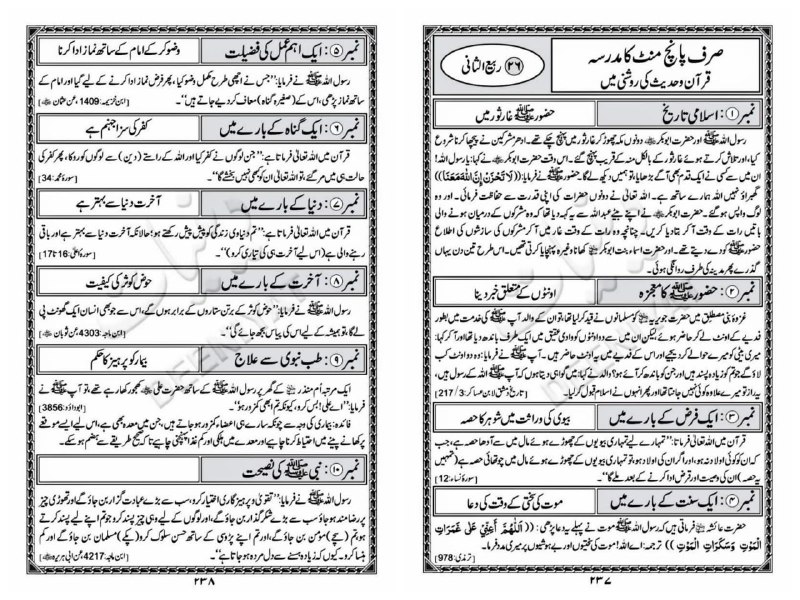 صرف پانچ منٹ کا مدرسہ
قرآن و حدیث کی روشنی میں
۲۶ ربیع الثانی
نمبر ۱: اسلامی تاریخ
حضور ﷺ غار ثور میں
رسول اللہ ﷺ اور حضرت ابوبکر ؓ دونوں مکہ چھوڑ کر غار ثور میں پہنچ چکے تھے۔ ادھر مشرکین نے پیچھا کرنا شروع
کیا، اور تلاش کرتے ہوئے غار ثور کے بالکل منہ کے قریب پہنچ گئے۔ اس وقت حضرت ابوبکر ؓ نے کہا: یا رسول اللہ!
ان میں سے کسی نے ایک قدم بھی آگے بڑھایا، تو ہمیں دیکھ لے گا۔ حضور ﷺ نے فرمایا: ((لَا تَحْزَنْ إِنَّ اللّٰهَ مَعَنَا))
گھبراؤ نہیں اللہ ہمارے ساتھ ہے۔ اللہ تعالیٰ نے دونوں حضرات کی اپنی قدرت سے حفاظت فرمائی۔ اور وہ
لوگ واپس ہو گئے۔ حضرت ابوبکر ؓ نے اپنے بیٹے عبداللہ سے یہ کہہ دیا تھا کہ وہ مشرکوں کے درمیان ہونے والی
باتیں رات کے وقت آکر بتا دیا کریں۔ چنانچہ وہ رات کے وقت غار میں آکر مشرکوں کی سازشوں کی اطلاع
حضور ﷺ کو دے دیتے تھے۔ اور حضرت اسماء بنت ابوبکر ؓ کھانا وغیرہ پہنچایا کرتی تھیں۔ اس طرح تین دن یہاں
گذرے پھر مدینہ کی طرف روانگی ہوئی۔
نمبر ۲: حضور ﷺ کا معجزہ
اونٹوں کے متعلق خبر دینا
غزوۂ بنی مصطلق میں حضرت جویریہ ؓ کو مسلمانوں نے قید کر لیا تھا، تو ان کے والد آپ ﷺ کی خدمت میں بطور
فدیے کے اونٹ لے کر حاضر ہوئے، لیکن ان میں سے دو اونٹوں کو وادی عقیق میں ایک طرف باندھ دیا تھا اور آکر کہا:
میری بیٹی کو میرے حوالے کر دیجیے اور اس کے فدیے میں یہ اونٹ حاضر ہیں۔ آپ ﷺ نے فرمایا: وہ دو اونٹ کب
لاؤ گے جو تم کو زیادہ پسند ہیں اور جن کو باندھ کر آئے ہو؟ کے والد نے کہا: میں گواہی دیتا ہوں کہ آپ ﷺ اللہ کے رسول ہیں،
یہ راز تو میرے علاوہ کوئی نہیں جانتا تھا اور پھر انہوں نے اسلام قبول کر لیا۔ [تاریخ دمشق لابن عساکر: 3/ 217]
نمبر ۳: ایک فرض کے بارے میں
بیوی کی وراثت میں شوہر کا حصہ
قرآن میں اللہ تعالیٰ فرماتا ہے: ”تمہارے لیے تمہاری بیویوں کے چھوڑے ہوئے مال میں سے آدھا حصہ ہے، جب
کہ ان کو کوئی اولاد نہ ہو، اور اگر ان کی اولاد ہو، تو تمہاری بیویوں کے چھوڑے ہوئے مال میں چوتھائی حصہ ہے (تمہیں
یہ حصہ) ان کی وصیت اور قرض ادا کرنے کے بعد ملے گا“۔ [سورۂ نساء: 12]
نمبر ۴: ایک سنت کے بارے میں
موت کی سختی کے وقت کی دعا
حضرت عائشہ ؓ فرماتی ہیں کہ رسول اللہ ﷺ موت سے پہلے یہ دعا پڑھی: ((اَللّٰهُمَّ أَعِنِّيْ عَلٰى غَمَرَاتِ
الْمَوْتِ وَسَكَرَاتِ الْمَوْتِ)) ترجمہ: اے اللہ! موت کی سختیوں اور بے ہوشیوں پر میری مدد فرما۔
[ترمذی: 978]
۲۳۷
نمبر ۵: ایک اہم عمل کی فضیلت
وضو کر کے امام کے ساتھ نماز ادا کرنا
رسول اللہ ﷺ نے فرمایا: ”جس نے اچھی طرح مکمل وضو کیا، پھر فرض نماز ادا کرنے کے لیے گیا اور امام کے
ساتھ نماز پڑھی، اس کے (صغیرہ گناہ) معاف کر دیے جاتے ہیں“۔ [ابن خزیمہ: 1409، عن عثمان ؓ]
نمبر ۶: ایک گناہ کے بارے میں
کفر کی سزا جہنم ہے
قرآن میں اللہ تعالیٰ فرماتا ہے: ”جن لوگوں نے کفر کیا اور اللہ کے راستے (دین) سے لوگوں کو روکا، پھر کفر کی
حالت ہی میں مر گئے، تو اللہ تعالیٰ ان کو کبھی نہیں بخشے گا“۔ [سورۂ محمد: 34]
نمبر ۷: دنیا کے بارے میں
آخرت دنیا سے بہتر ہے
قرآن میں اللہ تعالیٰ فرماتا ہے: ”تم دنیاوی زندگی کو پیش پیش رکھتے ہو؛ حالانکہ آخرت دنیا سے بہتر ہے اور باقی
رہنے والی ہے (اس لیے آخرت ہی کی تیاری کرو)“۔ [سورۂ اعلیٰ: 16 تا 17]
نمبر ۸: آخرت کے بارے میں
حوض کوثر کی کیفیت
رسول اللہ ﷺ نے فرمایا: ”حوض کوثر کے برتن ستاروں کے برابر ہوں گے، اس سے جو بھی انسان ایک گھونٹ پی
لے گا، تو ہمیشہ کے لیے اس کی پیاس بجھ جائے گی“۔ [ابن ماجہ: 4303، عن ثوبان ؓ]
نمبر ۹: طب نبوی سے علاج
بیمار کو پرہیز کا حکم
ایک مرتبہ ام منذر ؓ کے گھر پر رسول اللہ ﷺ کے ساتھ حضرت علی ؓ کھجور کھا رہے تھے، تو آپ ﷺ نے
فرمایا: ”اے علی! بس کرو، کیونکہ تم ابھی کمزور ہو“۔ [ابوداؤد: 3856]
فائدہ: بیماری کی وجہ سے چونکہ سارے ہی اعضاء کمزور ہو جاتے ہیں، جن میں معدہ بھی ہے، اس لیے ایسے موقعے
پر کھانے پینے میں احتیاط کرنا چاہیے اور معدے میں ہلکی اور کم غذا پہنچنی چاہیے تا کہ صحیح طریقے سے ہضم ہو سکے۔
نمبر ۱۰: نبی ﷺ کی نصیحت
رسول اللہ ﷺ نے فرمایا: ”تقویٰ و پرہیزگاری اختیار کرو، سب سے بڑے عبادت گزار بن جاؤ گے اور تھوڑی چیز
پر رضامند ہو جاؤ سب سے بڑے شکر گذار بن جاؤ گے، اور لوگوں کے لیے وہی چیز پسند کرو جو تم اپنے لیے پسند کرتے
ہو، تم (سچے) مؤمن بن جاؤ گے، اور تم اپنے پڑوسی کے ساتھ حسن سلوک کرو (سچے) مسلمان بن جاؤ گے اور
کم ہنسا کرو۔ کیوں کہ زیادہ ہنسنے سے دل مردہ ہو جاتا ہے“۔ [ابن ماجہ: 4217، عن ابی ہریرہ ؓ]
۲۳۸